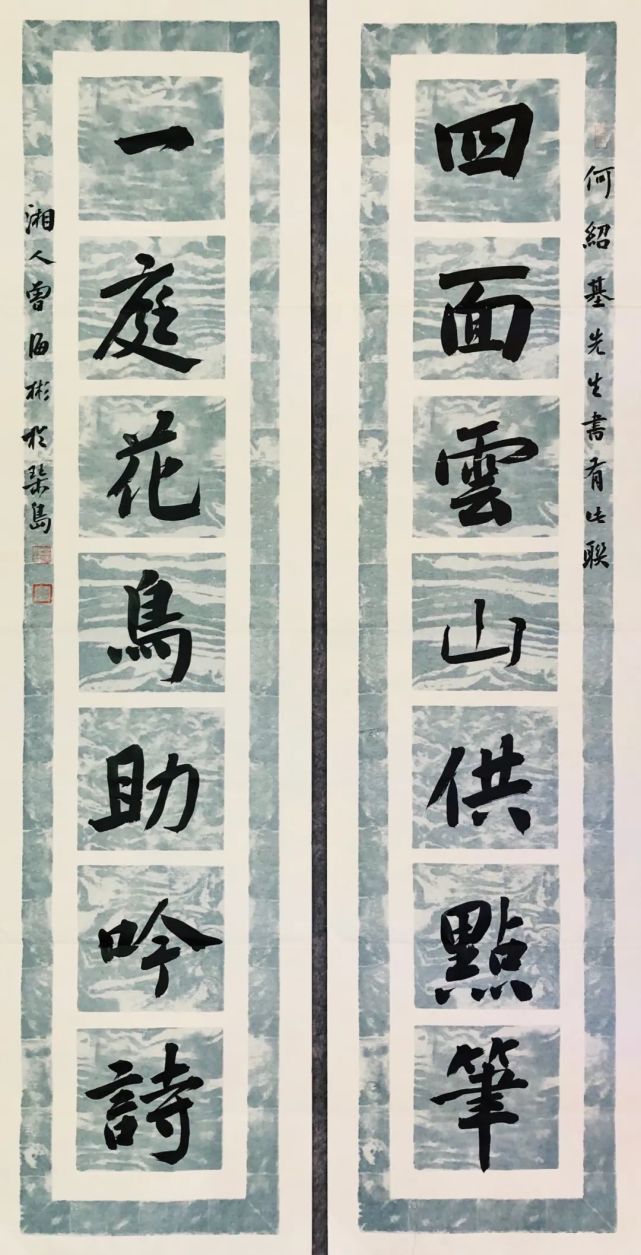 何紹基先生書有此聯
四面雲山供點筆
一庭花鳥助吟詩
湘人曾海彬於琴島